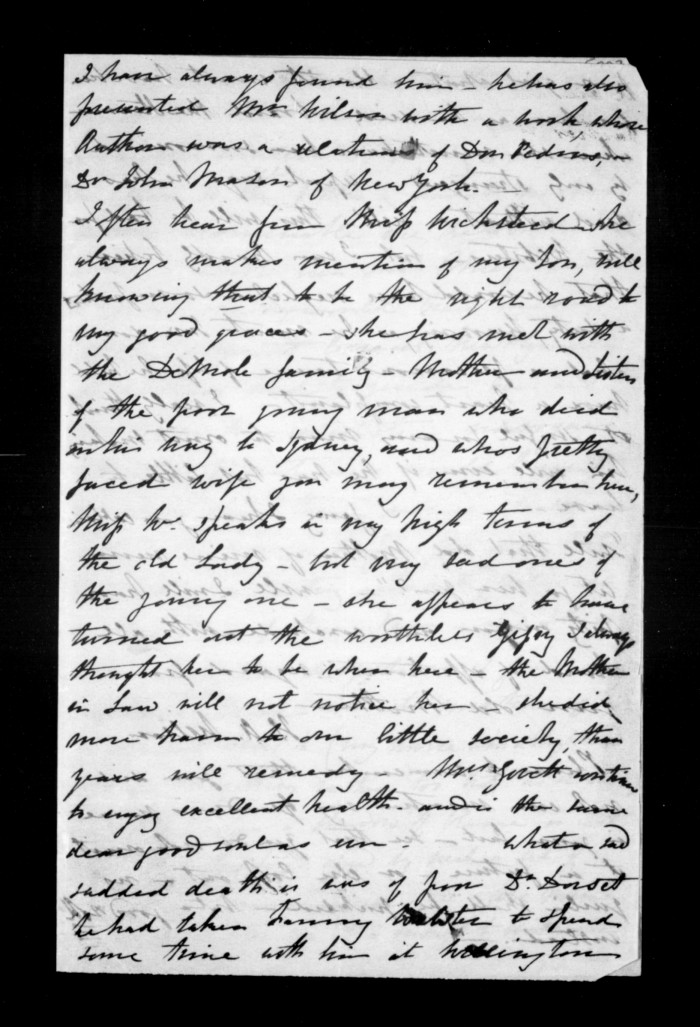 I have always found him - he has also
presented Mrs Wilson with a work whose
Author was a relation of Don Pedros,
Dr John Mason of New York.
I often hear from Miss Wicksteed she
always makes mention of my Son, well
knowing that to be the right road to
my good graces - she has met with
the DeMole family - Mother and Sisters
of the poor young man who died
on his way to Sydney, and whos pretty
faced wife you may remember here,
Miss W. speaks in very high terms of
the old Lady - but very bad ones of
the young one - she appears to have
turned out the worthless Gipsy I always
thought her to be when here - the Mother
in Law will not notice her - she did
more harm to our little society, than
years will remedy - Mrs continues
to enjoy excellent health - and is the same
dear good soul as ever - what a sad
sudded death is was of poor Dr. Dorset
he had taken Fanny Webster to spend
some time with him at Wellington